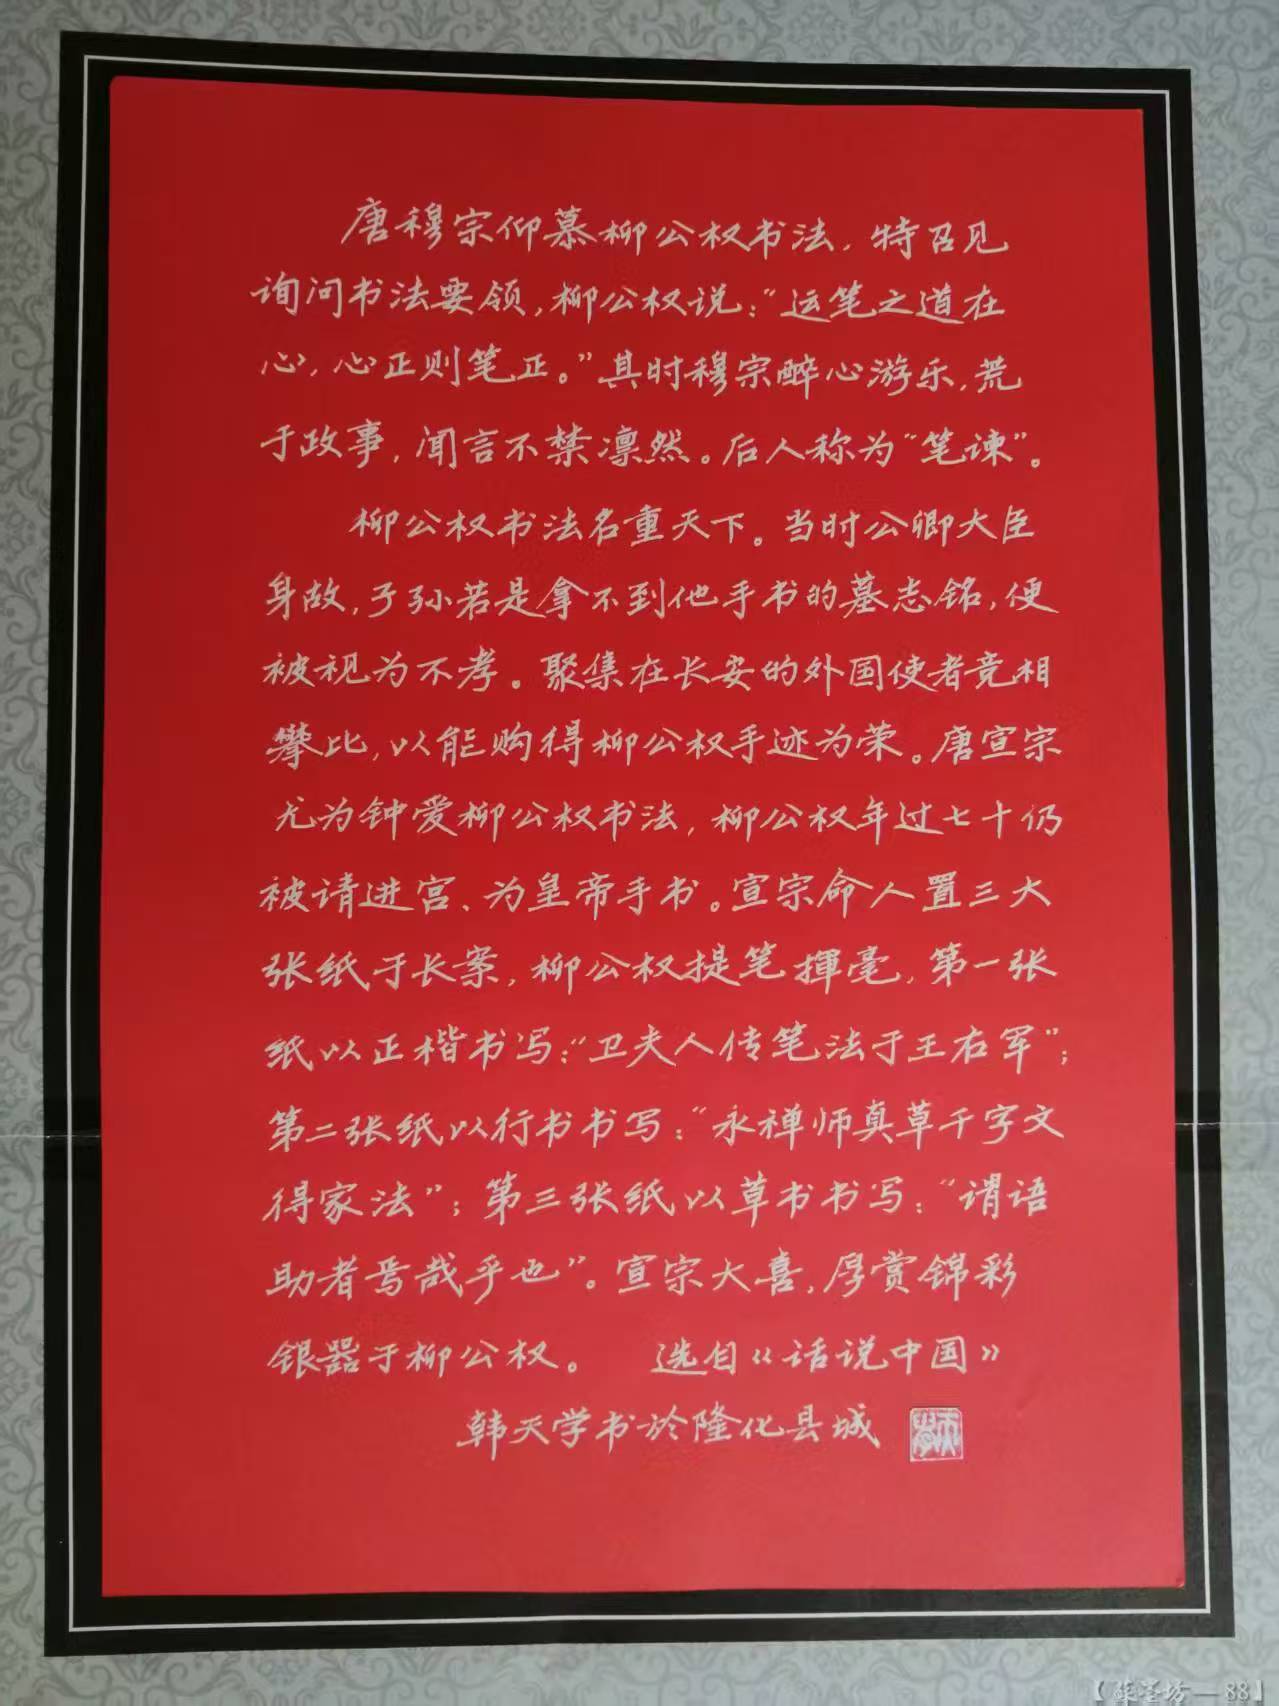 唐穆宗仰慕柳公权书法，特召见
询问书法要领，柳公权说：“运笔之道在
心，心正则笔正。”其时穆宗醉心游乐，荒
于政事，闻言不禁凛然。后人称为“笔谏”。
柳公权书法名重天下。当时公卿大臣
身故，子孙若是拿不到他手书的墓志铭，便
被视为不孝。聚集在长安的外国使者竞相
攀比，以能购得柳公权手迹为荣。唐宣宗
尤为钟爱柳公权书法，柳公权年过七十仍
被请进宫、为皇帝手书。宣宗命人置三大
张纸于长案，柳公权提笔揮毫，第一张
纸以正楷书写：“卫夫人传笔法于王右军”；
第二张纸以行书书写：“永禅师真草千字文
得家法”；第三张纸以草书书写：“谓语
助者焉哉乎也”。宣宗大喜，厚赏锦彩
银器于柳公权。 选自《话说中国》
韩天学书於隆化县城
—88】